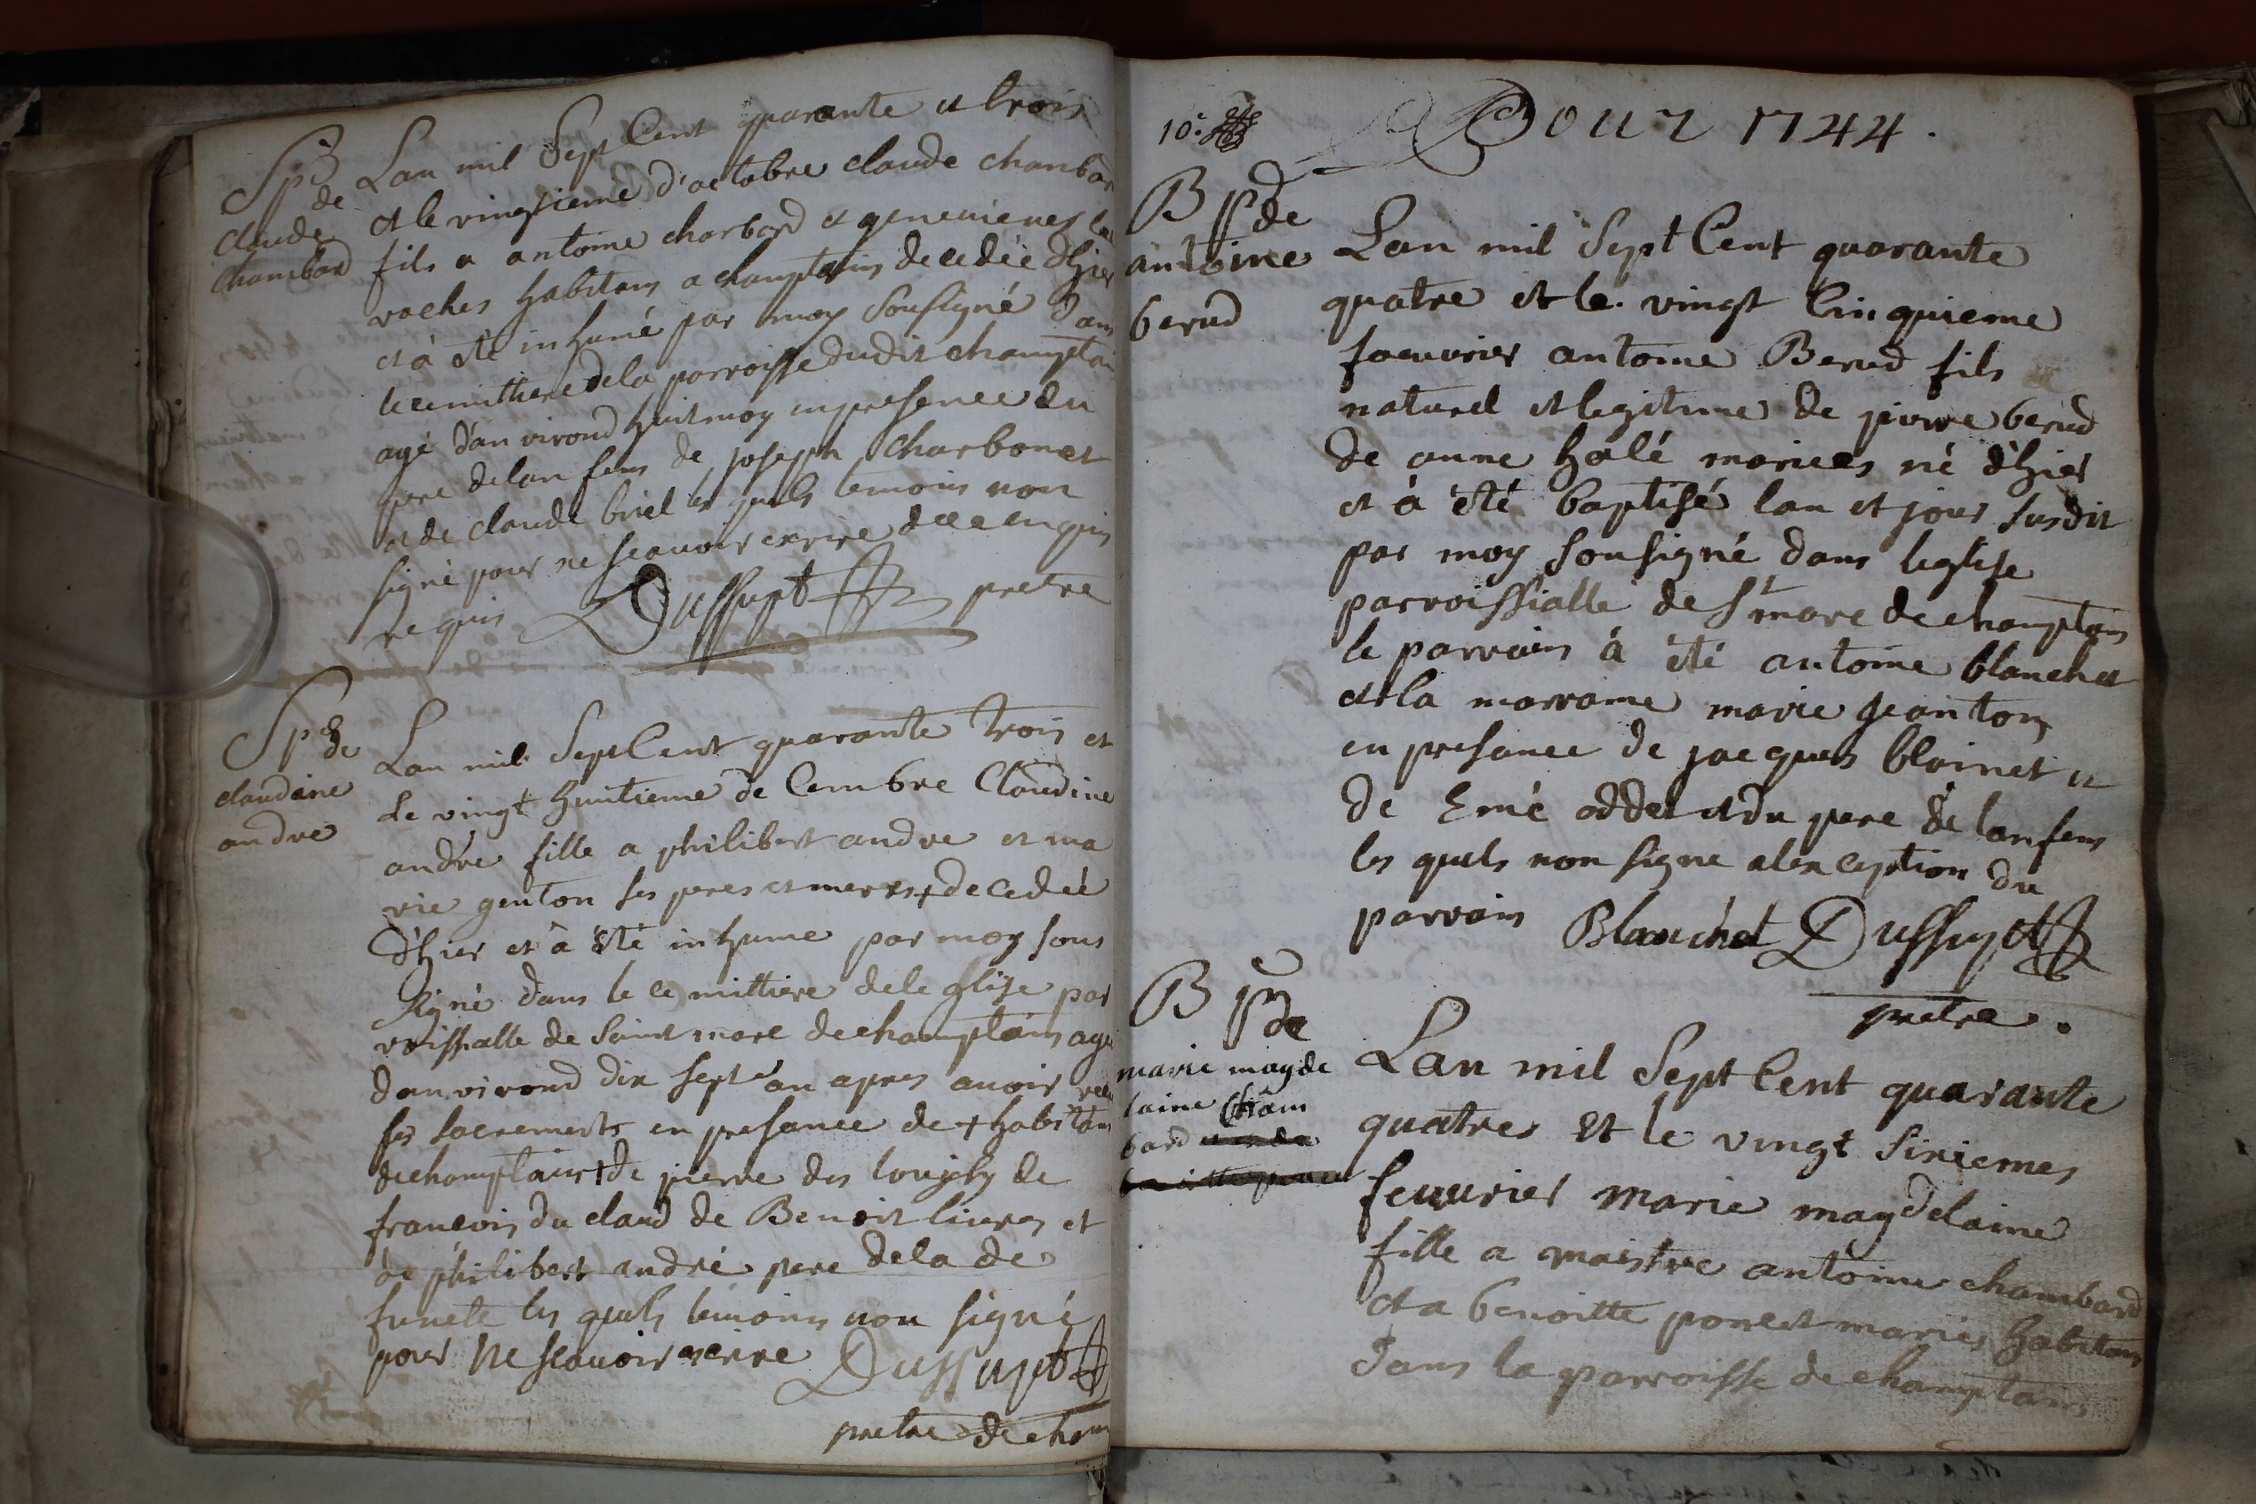 Sp de
claude
chambard
Lan mil Sept Cent quarante et trois
et le vingtieme d'octobre claude chambar
fils a antoine chambard et genevieve la
roches habitans a champtains decedée d'hier
et à été inhumé par moy Sousigné dans
le cemithere dela parroisse dudit champtai
agé d'an virond huit moy en presence du
pere delan fens de joseph charbonet
et de claude briel les quels temoins non
signé pour ne scauoir exrire de ce enquis
requis Dussupt pretre
Sp de
claudine
andre
Lan mil Sept Cent quarante trois et
Le vingt huitieme de Cembre Claudine
andre fille a philibert andre et ma
rie genton ses peres et meres + decedeé
d'hier et à été inhume par moy sous
signé dans le cemittiere dele glise par
roissialle de Saint marc de champtains agé
dan virond dix sept an apres auoir reçu
ses sacrements en presance de + habitans
de champtains + de pierre des
francois du claud de Benoit liuras et
de philibert andré pere dela de
functe les quels temoins non signé
pour Ne scauoir exrire Dussupt
pretre de cham
10e
Pour 1744.
B p de
antoine
berud
Lan mil Sept Cent quarante
quatre et le vingt Cinquieme
faeuvrier antoine Berud fils
naturel et legitime de pierre berud
de anne halé mariees né d'hier
et à été baptisé lan et jour susdit
par moy sousigné dans leglise
parroissialle de St marc de champtains
le parrain à été antoine blanchet
et la marraine marie jeanton
en presance de jacques blainet et
de Emé oddet et du pere de lanfens
les quels non signe a lexception du
parrain Blanchet Dussupt
pretre.
B p de
marie magde
laine Cham
bard
Lan mil Sept Cent quarante
quatres Et le vingt sixiemes
feuurier marie magdelaine
fille a maistre antoine chambard
et a benoitte poncet maries habitans
dans la parroisse de champtains